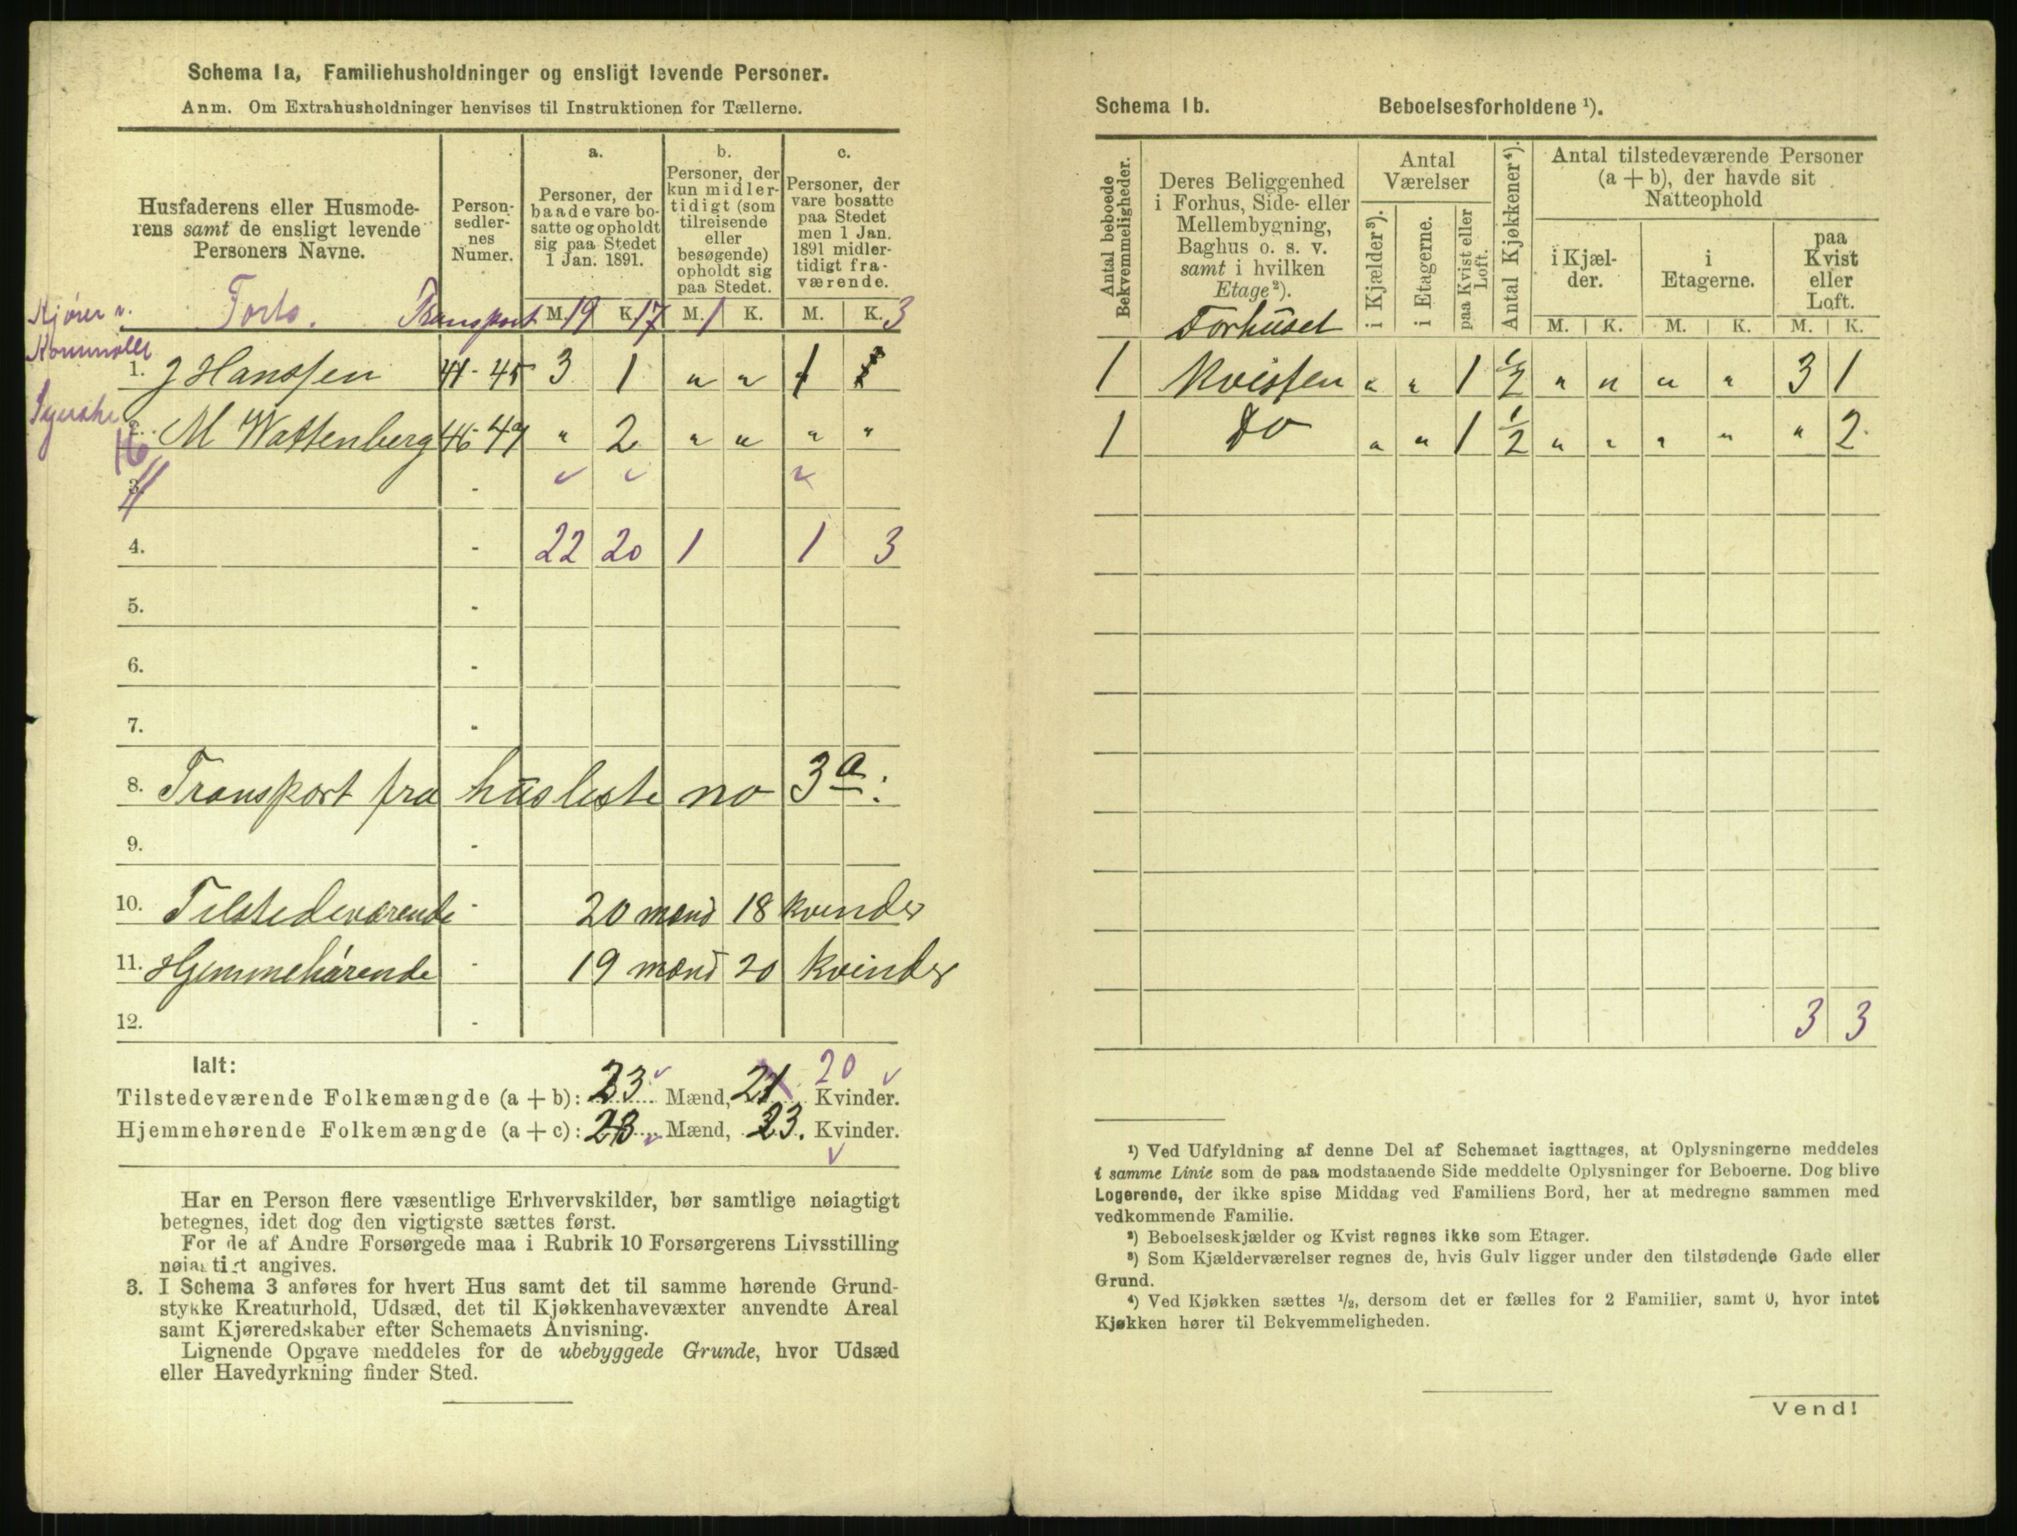 Schema 1a, Familiehusholdninger og ensligt levende Personer.
Anm. Om Extrahusholdninger henvises til Instruktionen for Tællerne.
Husfaderens eller Husmode-
rens samt de ensligt levende
Personers Navne.
Person-
sedler-
nes
Numer.
a.
Personer, der
baade vare bo-
satte og opholdt
sig paa Stedet
1 Jan. 1891.
b.
Personer, der
kun midler-
tidigt (som
tilreisende
eller
besøgende)
opholdt sig
paa Stedet.
c.
Personer, der
vare bosatte
paa Stedet
men 1 Jan.
1891 midler-
tidigt fra-
værende.
Forts. Transport M. 19 K. 17 M. 1 K. M. K. 3
Kjører
1. J Hanssen 41-45 3 1 " " 1
Syerske
2. M Wattenberg 46-47 " 2 " " " "
16
3. -
4. - 22 20 1 1 3
5. -
6. -
7. -
8. Transport fra husliste no 3a:
9. -
10. Tilstedeværende - 20 mænd 18 kvinder
11. Hjemmehørende - 19 mænd 20 kvinder
12. -
Ialt:
20
Tilstedeværende Folkemængde (a + b): 23 Mænd, 21 Kvinder.
Hjemmehørende Folkemængde (a + c): 23 Mænd, 23. Kvinder.
Har en Person flere væsentlige Erhvervskilder, bør samtlige nøiagtigt
betegnes, idet dog den vigtigste sættes først.
For de af Andre Forsørgede maa i Rubrik 10 Forsørgerens Livsstilling
nøiagtigt angives.
3. I Schema 3 anføres for hvert Hus samt det til samme hørende Grund-
stykke Kreaturhold, Udsæd, det til Kjøkkenhavevæxter anvendte Areal
samt Kjøreredskaber efter Schemaets Anvisning.
Lignende Opgave meddeles for de ubebyggede Grunde, hvor Udsæd
eller Havedyrkning finder Sted.
Schema 1b. Beboelsesforholdene ¹).
Antal beboede
Bekvemmeligheder.
Deres Beliggenhed
i Forhus, Side- eller
Mellembygning,
Baghus o. s. v.
samt i hvilken
Etage²).
Antal
Værelser
i Kjælder³).
i Etagerne.
paa Kvist eller
Loft.
Antal Kjøkkener⁴).
Antal tilstedeværende Personer
(a + b), der havde sit
Natteophold
i Kjæl-
der.
i
Etagerne.
paa
Kvist
eller
Loft.
M. K. M. K. M. K.
Forhuset
1 Kvisten " " 1 1/2 " " " " 3 1
1 Do " " 1 1/2 " " " " " 2
3 3
¹) Ved Udfyldning af denne Del af Schemaet iagttages, at Oplysningerne meddeles
i samme Linie som de paa modstaaende Side meddelte Oplysninger for Beboerne. Dog blive
Logerende, der ikke spise Middag ved Familiens Bord, her at medregne sammen med
vedkommende Familie.
²) Beboelseskjælder og Kvist regnes ikke som Etager.
³) Som Kjælderværelser regnes de, hvis Gulv ligger under den tilstødende Gade eller
Grund.
⁴) Ved Kjøkken sættes ½, dersom det er fælles for 2 Familier, samt 0, hvor intet
Kjøkken hører til Bekvemmeligheden.
Vend!